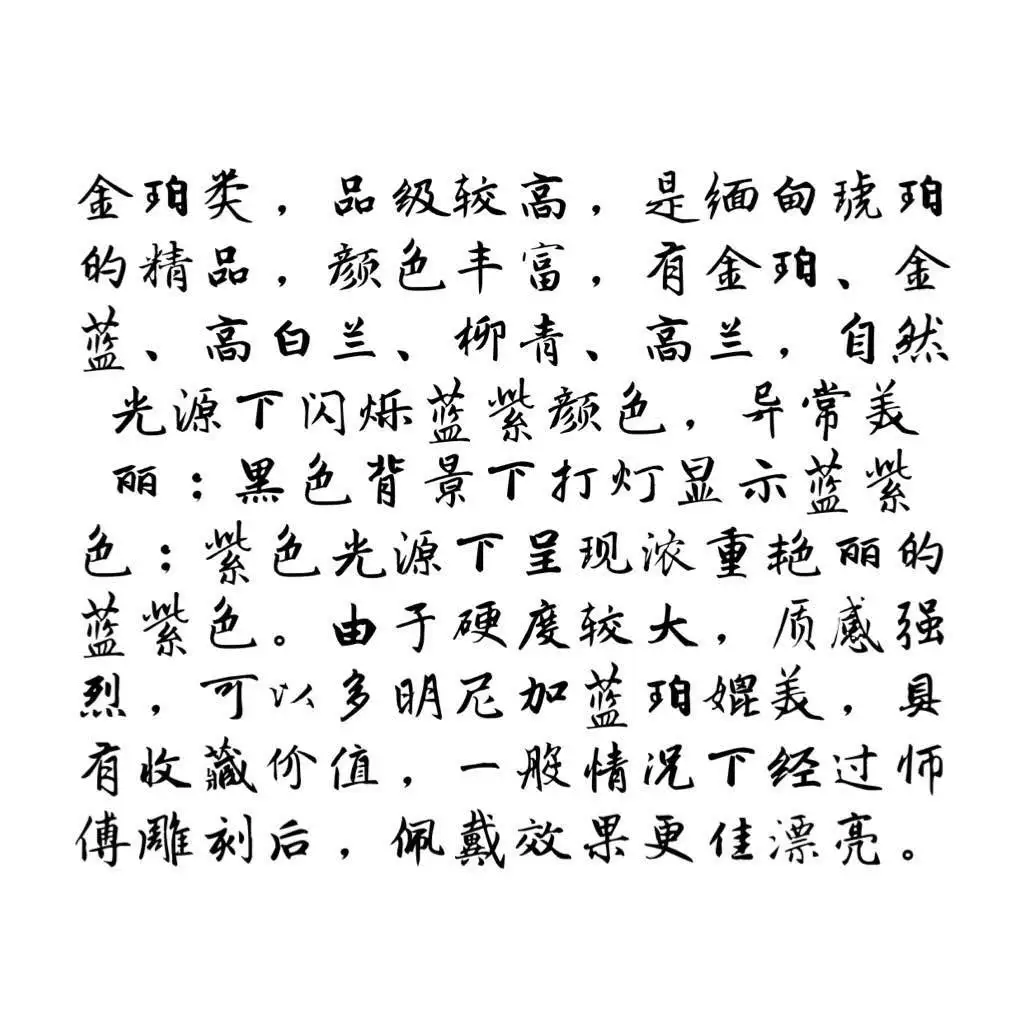 金珀类，品级较高，是缅甸琥珀
的精品，颜色丰富，有金珀、金
蓝、高白兰、柳青、高兰，自然
光源下闪烁蓝紫颜色，异常美
丽：黑色背景下打灯显示蓝紫
色：紫色光源下呈现浓重艳丽的
蓝紫色。由于硬度较大，质感强
烈，可以多明尼加蓝珀媲美，具
有收藏价值，一般情况下经过师
傅雕刻后，佩戴效果更佳漂亮。